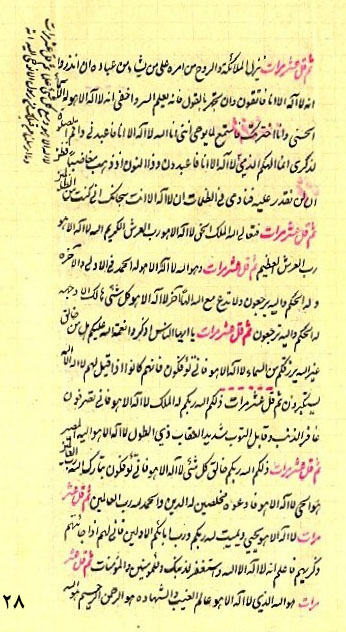 ثم قل عشر مرات ينزل الملائكة والروح من امره على من يشاء من عباده ان انذروا
انه لا اله الا انا فاتقون وان تجهر بالقول فانه يعلم السر واخفى الله لا اله الا هو له الاسماء
الحسنى وانا اخترتك فاستمع لما يوحى اننى انا الله لا اله الا انا فاعبدنى واقم الصلوة
لذكرى انما الهكم الله الذى لا اله الا انا فاعبدون وذا النون اذ ذهب مغاضبا فظن
ان لن نقدر عليه فنادى فى الظلمات ان لا اله الا انت سبحانك انى كنت من الظالمين
ثم قل عشر مرات فتعالى الله الملك الحق لا اله الا هو رب العرش الكريم الله لا اله الا هو
رب العرش العظيم ثم قل عشر مرات وهو الله لا اله الا هو له الحمد فى الاولى والآخرة
وله الحكم واليه ترجعون ولا تدع مع الله الها آخر لا اله الا هو كل شئ هالك الا وجهه
له الحكم واليه ترجعون ثم قل عشر مرات يا ايها الناس اذكروا نعمة الله عليكم هل من خالق
غير الله يرزقكم من السماء لا اله الا هو فانى تؤفكون فانهم كانوا اذا قيل لهم لا اله الا الله
يستكبرون ثم قل عشر مرات ذلكم الله ربكم له الملك لا اله الا هو فانى تصرفون
غافر الذنب وقابل التوب شديد العقاب ذى الطول لا اله الا هو اليه المصير
ثم قل عشر مرات ذلكم الله ربكم خالق كل شئ لا اله الا هو فانى تؤفكون تبارك الله رب العالمين
هو الحى لا اله الا هو فادعوه مخلصين له الدين والحمد لله رب العالمين ثم قل عشر
مرات لا اله الا هو يحيى ويميت ربكم ورب آبائكم الاولين فانى لهم اذا جائتهم
ذكريهم فاعلم انه لا اله الا الله واستغفر لذنبك وللمؤمنين والمؤمنات ثم قل عشر
مرات هو الله الذى لا اله الا هو عالم الغيب والشهادة هو الرحمن الرحيم هو الله
٢٨